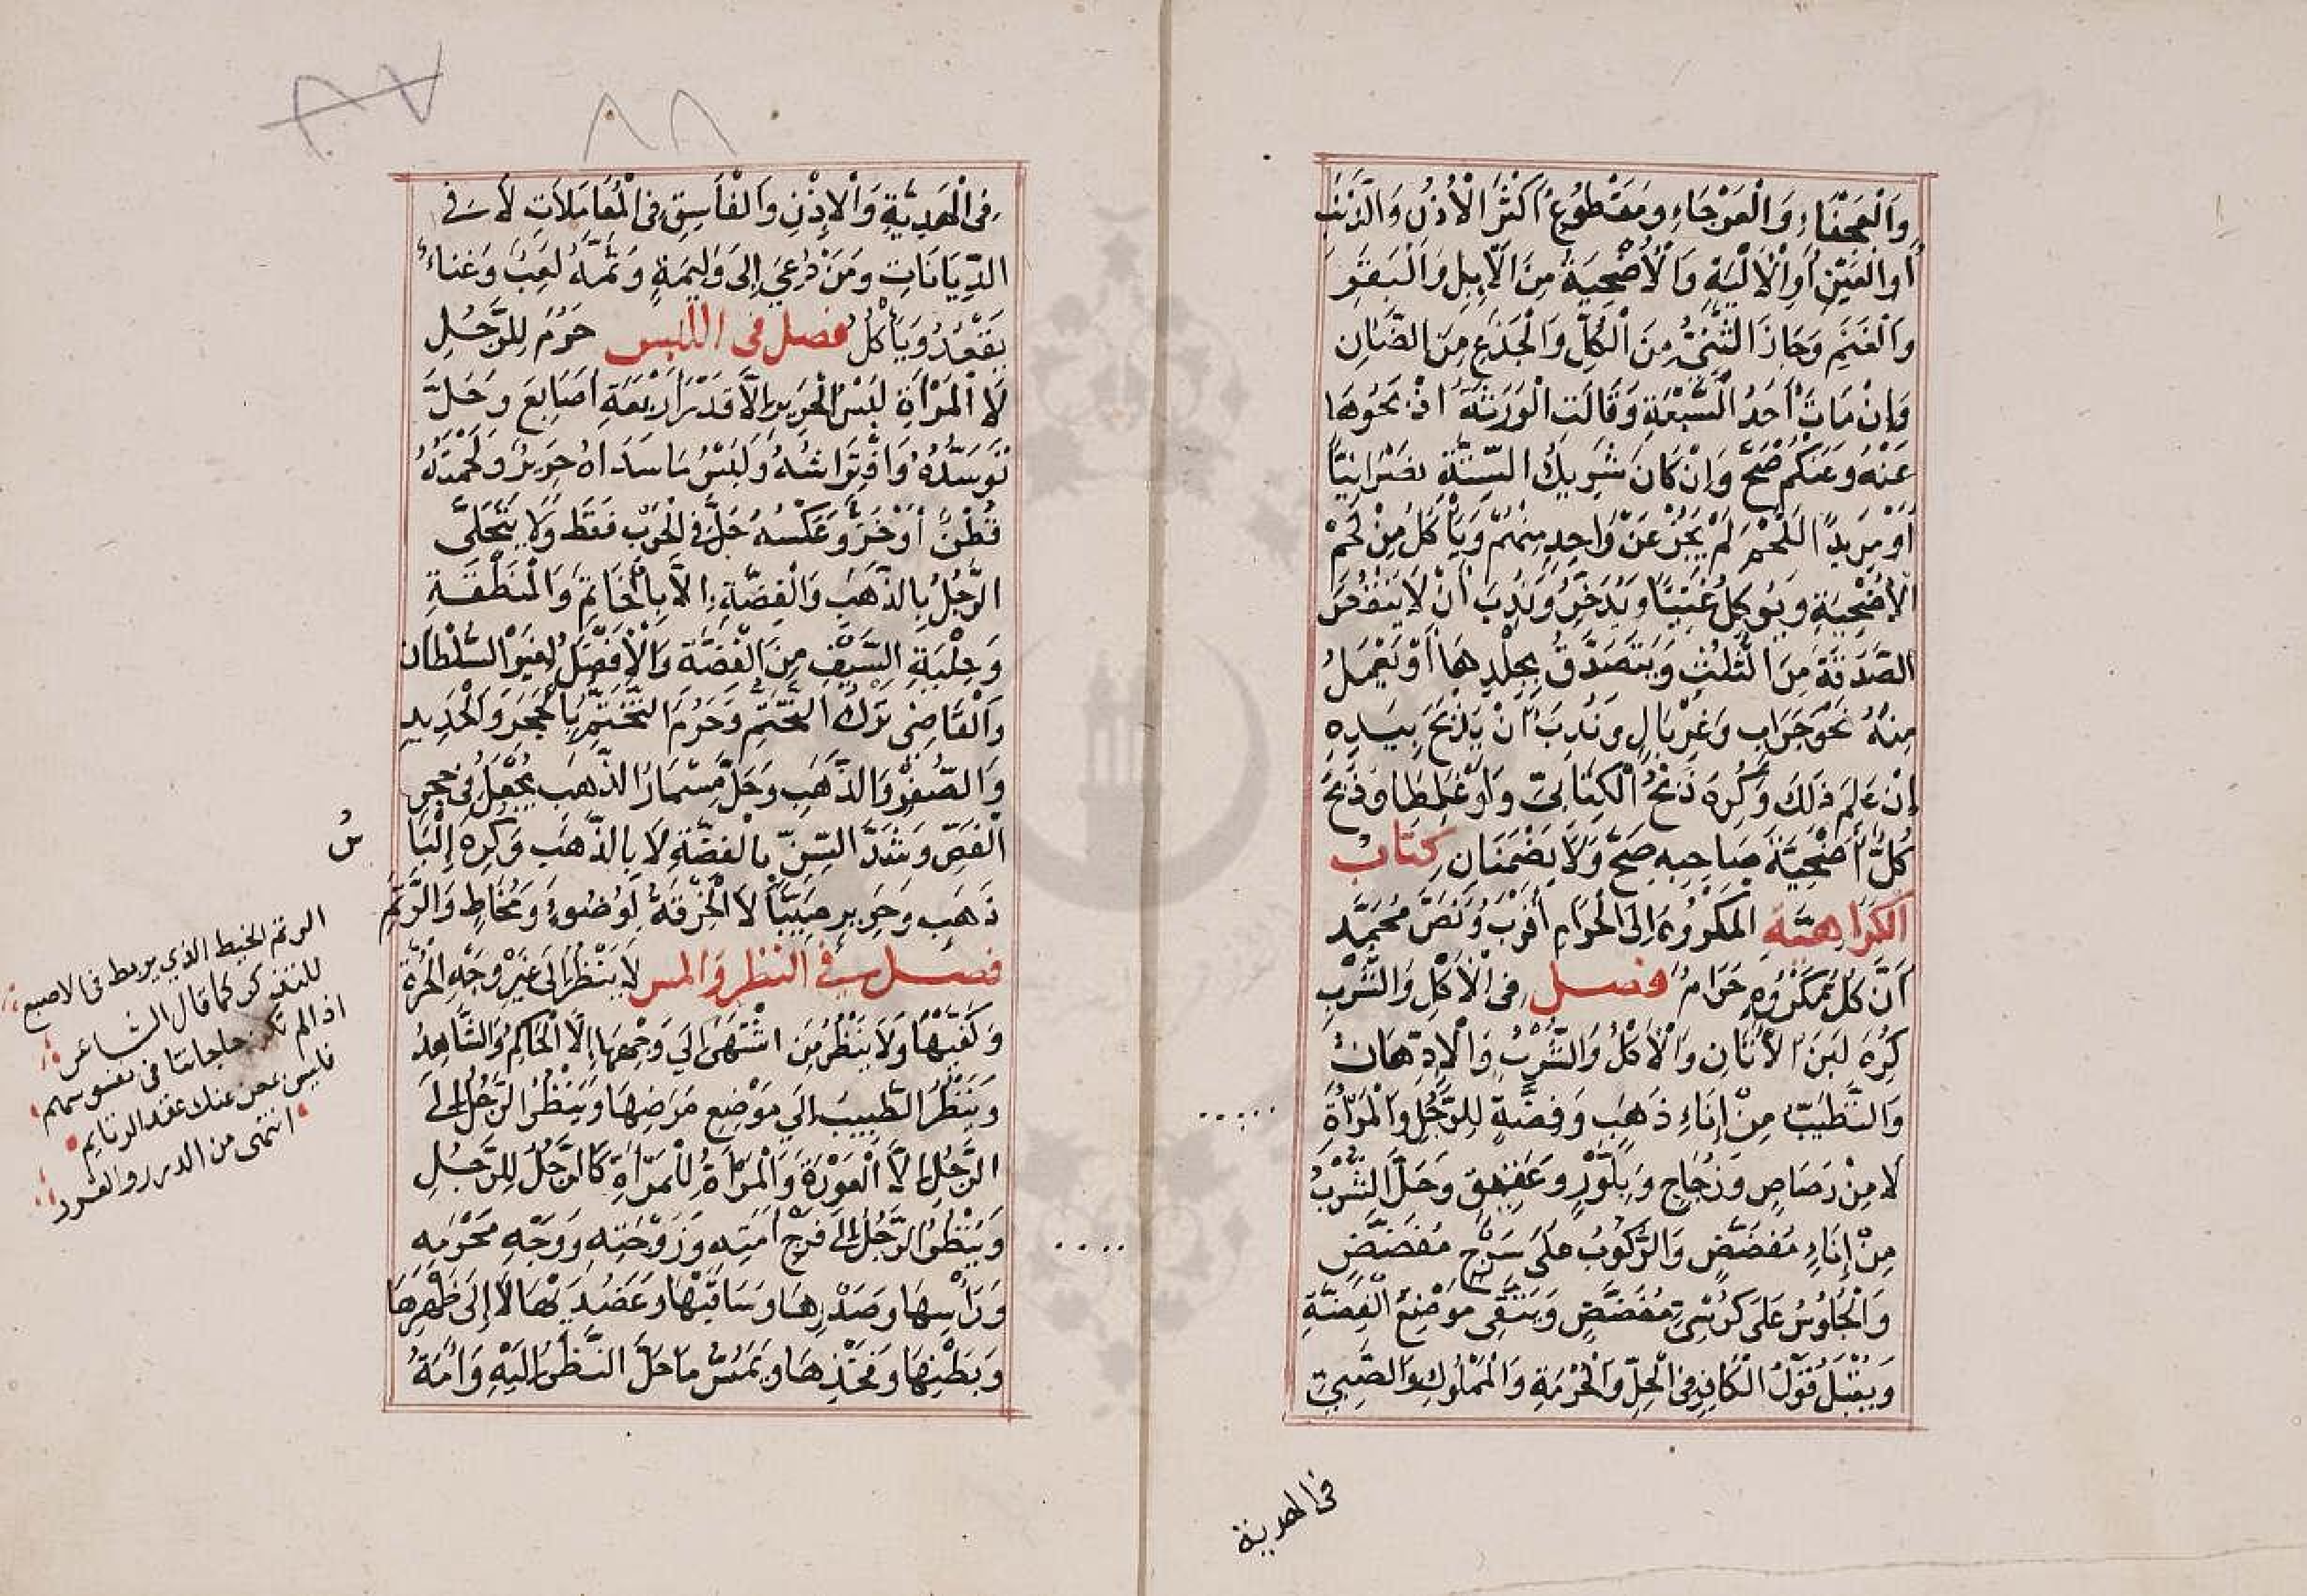 وَالْعَجْفَاءِ وَالْعَرْجَاءِ وَمَقْطُوعِ أَكْثَرِ الْأُذُنِ وَالذَّنَبِ
أَوِ الْعَيْنِ أَوِ الْأَلْيَةِ وَالْأُضْحِيَةُ مِنَ الْإِبِلِ وَالْبَقَرِ
وَالْغَنَمِ وَجَازَ الثَّنِيُّ مِنَ الْكُلِّ وَالْجَذَعِ مِنَ الضَّانِ
وَإِنْ مَاتَ أَحَدُ السَّبْعَةِ وَقَالَتِ الْوَرَثَةُ اذْبَحُوهَا
عَنْهُ وَعَنْكُمْ صَحَّ وَإِنْ كَانَ شَرِيكُ السِّتَّةِ نَصْرَانِيًّا
أَوْ مُرِيدًا اللَّحْمَ لَمْ يَجُزْ عَنْ وَاحِدٍ مِنْهُمْ وَيَأْكُلُ مِنْ لَحْمِ
الْأُضْحِيَةِ وَيُوكِلُ غَنِيًّا وَيَدَّخِرُ وَنُدِبَ أَنْ لَا يَنْقُصَ
الصَّدَقَةَ مِنَ الثُّلُثِ وَيَتَصَدَّقُ بِجِلْدِهَا أَوْ يَعْمَلُ
مِنْهُ نَحْوَ جِرَابٍ وَغِرْبَالٍ وَنُدِبَ أَنْ يَذْبَحَ بِيَدِهِ
إِنْ عَلِمَ ذَلِكَ وَكُرِهَ ذَبْحُ الْكِتَابِيِّ وَلَوْ غَلِطَا وَذَبَحَ
كُلٌّ أُضْحِيَّةَ صَاحِبِهِ صَحَّ وَلَا يَضْمَنَانِ كِتَابُ
الْكَرَاهِيَّةِ الْمَكْرُوهُ إِلَى الْحَرَامِ أَقْرَبُ وَنَصَّ مُحَمَّدٌ
أَنَّ كُلَّ مَكْرُوهٍ حَرَامٌ فصل فِي الْأَكْلِ وَالشُّرْبِ
كُرِهَ لَبَنُ الْأَتَانِ وَالْأَكْلُ وَالشُّرْبُ وَالْادِّهَانُ
وَالتَّطَيُّبُ مِنْ إِنَاءِ ذَهَبٍ وَفِضَّةٍ لِلرَّجُلِ وَالْمَرْأَةِ
لَا مِنْ رَصَاصٍ وَزُجَاجٍ وَبِلَّوْرٍ وَعَقِيقٍ وَحَلَّ الشُّرْبُ
مِنْ إِنَاءٍ مُفَضَّضٍ وَالرُّكُوبُ عَلَى سَرْجٍ مُفَضَّضٍ
وَالْجُلُوسُ عَلَى كُرْسِيٍّ مُفَضَّضٍ وَيَتَّقِي مَوْضِعَ الْفِضَّةِ
وَيُقْبَلُ قَوْلُ الْكَافِرِ فِي الْحِلِّ وَالْحُرْمَةِ وَالْمَمْلُوكِ وَالصَّبِيِّ
في الهدية
٨٧
٨٨
فِي الْهَدِيَّةِ وَالْإِذْنِ وَالْفَاسِقِ فِي الْمُعَامَلَاتِ لَا فِي
الدِّيَانَاتِ وَمَنْ دُعِيَ إِلَى وَلِيمَةٍ وَثَمَّةَ لَعِبٌ وَغِنَاءٌ
يَقْعُدُ وَيَأْكُلُ فصل في اللبس حَرُمَ لِلرَّجُلِ
لَا الْمَرْأَةِ لُبْسُ الْحَرِيرِ إِلَّا قَدْرَ أَرْبَعَةِ أَصَابِعَ وَحَلَّ
تَوَسُّدُهُ وَافْتِرَاشُهُ وَلُبْسُ مَا سَدَاهُ حَرِيرٌ وَلَحْمَتُهُ
قُطْنٌ أَوْ خَزٌّ وَعَكْسُهُ حَلَّ فِي الْحَرْبِ فَقَطْ وَلَا يَتَحَلَّى
الرَّجُلُ بِالذَّهَبِ وَالْفِضَّةِ إِلَّا بِالْخَاتَمِ وَالْمِنْطَقَةِ
وَحِلْيَةِ السَّيْفِ مِنَ الْفِضَّةِ وَالْأَفْضَلُ لِغَيْرِ السُّلْطَانِ
وَالْقَاضِي تَرْكُ التَّخَتُّمِ وَحَرُمَ التَّخَتُّمُ بِالْحَجَرِ وَالْحَدِيدِ
وَالصُّفْرِ وَالذَّهَبِ وَحَلَّ مِسْمَارُ الذَّهَبِ يُجْعَلُ فِي حجر
الْفَصِّ وَشَدُّ السِّنِّ بِالْفِضَّةِ لَا بِالذَّهَبِ وَكُرِهَ إِلْبَا
سُ
ذَهَبٍ وَحَرِيرٍ صَبِيًّا لَا الْخِرْقَةُ لِوُضُوءٍ وَمُخَاطٍ وَالرَّتَمِ
فصل في النظر والمس لَا يَنْظُرُ إِلَى غَيْرِ وَجْهِ الْحُرَّةِ
وَكَفَّيْهَا وَلَا يَنْظُرُ مَنِ اشْتَهَى إِلَى وَجْهِهَا إِلَّا الْحَاكِمُ وَالشَّاهِدُ
وَيَنْظُرُ الطَّبِيبُ إِلَى مَوْضِعِ مَرَضِهَا وَيَنْظُرُ الرَّجُلُ إِلَى
الرَّجُلِ إِلَّا الْعَوْرَةَ وَالْمَرْأَةُ لِلْمَرْأَةِ كَالرَّجُلِ لِلرَّجُلِ
وَيَنْظُرُ الرَّجُلُ إِلَى فَرْجِ أَمَتِهِ وَزَوْجَتِهِ وَوَجْهِ مَحْرَمِهِ
وَرَأْسِهَا وَصَدْرِهَا وَسَاقَيْهَا وَعَضُدَيْهَا لَا إِلَى ظَهْرِهَا
وَبَطْنِهَا وَفَخْذِهَا وَيَمَسُّ مَا حَلَّ النَّظَرُ إِلَيْهِ وَأَمَةُ
الرتم الخيط الذي يربط في الاصبع
للتذكر كما قال الشاعر
اذا لم تكن حاجاتنا في نفوسهم
فليس بمغن عنك عقد الرتايم
انتهى من الدرر والغرر